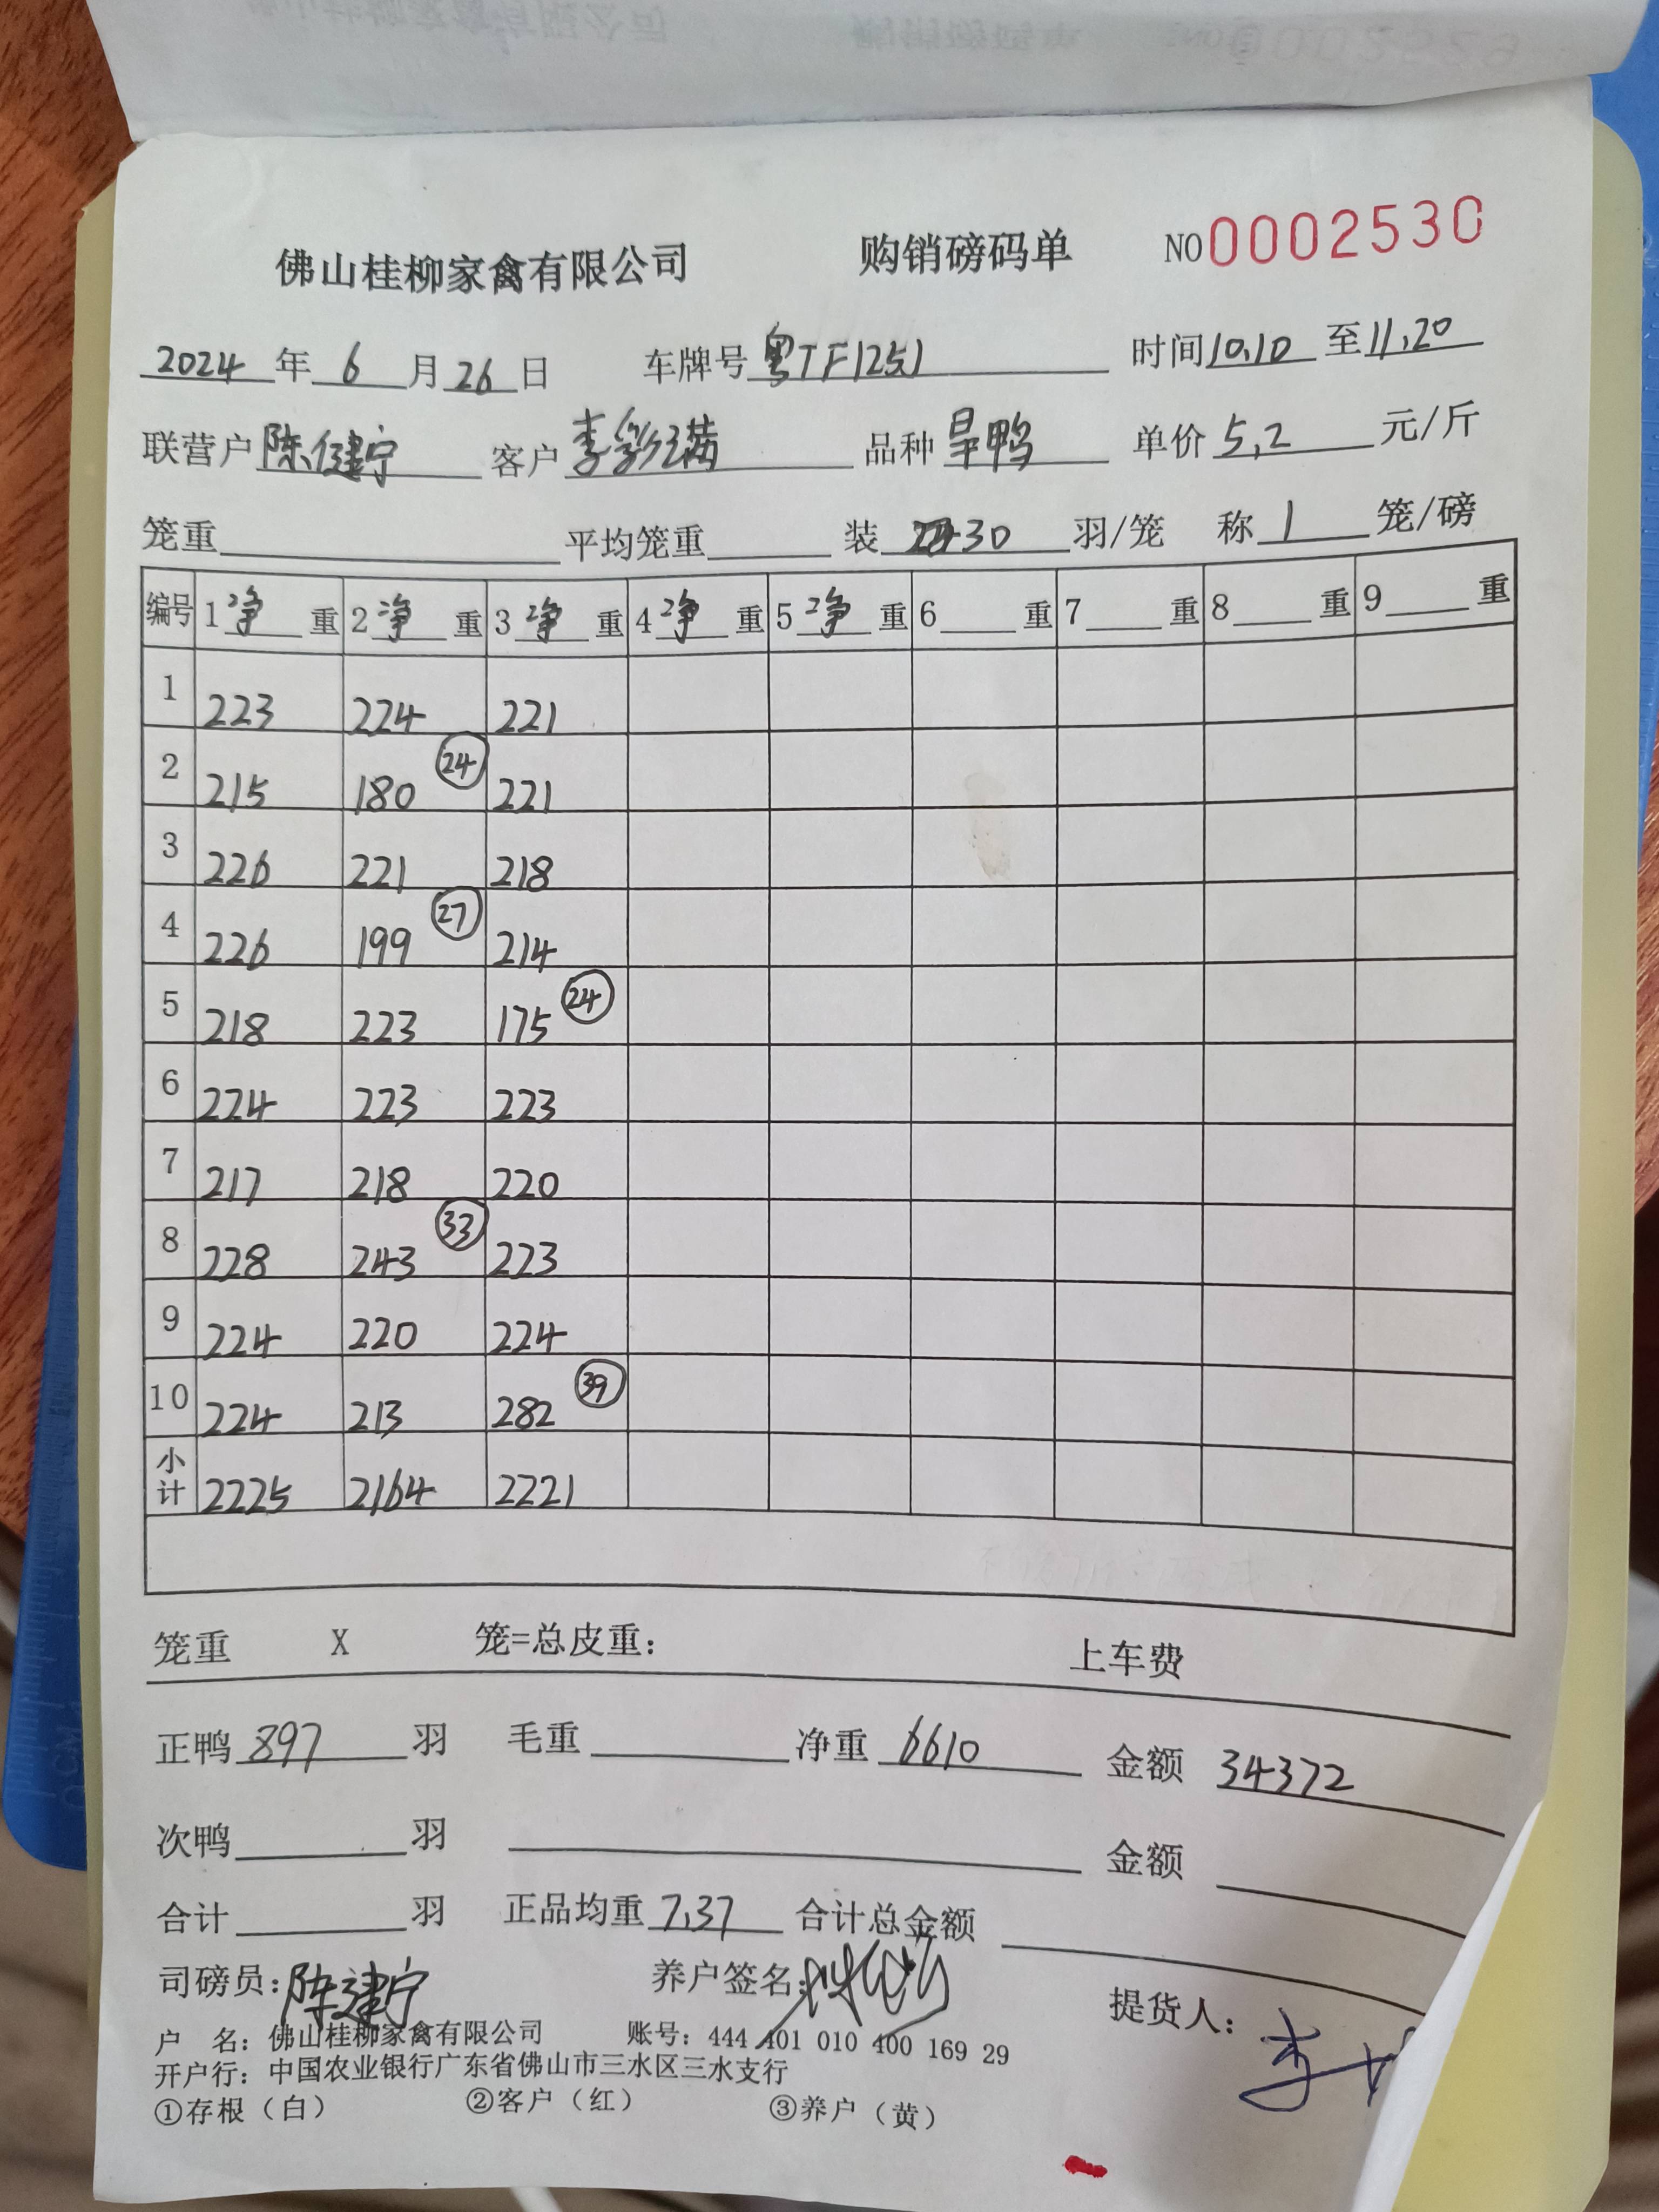 佛山桂柳家禽有限公司 购销磅码单 NO0002530
2024年6月26日 车牌号粤TF1251 时间10.10至11.20
联营户陈健宁 客户李彩满 品种旱鸭 单价5.2元/斤
笼重 平均笼重 装30羽/笼 称1笼/磅
编号 1净重 2净重 3净重 4净重 5净重 6重 7重 8重 9重
1 223 224 221
2 215 180 ㉔ 221
3 226 221 218
4 226 199 ㉗ 214
5 218 223 175 ㉔
6 224 223 223
7 217 218 220
8 228 243 ㉝ 223
9 224 220 224
10 224 213 282 ㊴
小计 2225 2164 2221
笼重 X 笼=总皮重: 上车费
正鸭897羽 毛重 净重6610 金额34372
次鸭 羽 金额
合计 羽 正品均重7.37 合计总金额
司磅员:陈建宁 养户签名: 提货人:李
户 名:佛山桂柳家禽有限公司 账号:444 401 010 400 169 29
开户行:中国农业银行广东省佛山市三水区三水支行
①存根(白) ②客户(红) ③养户(黄)